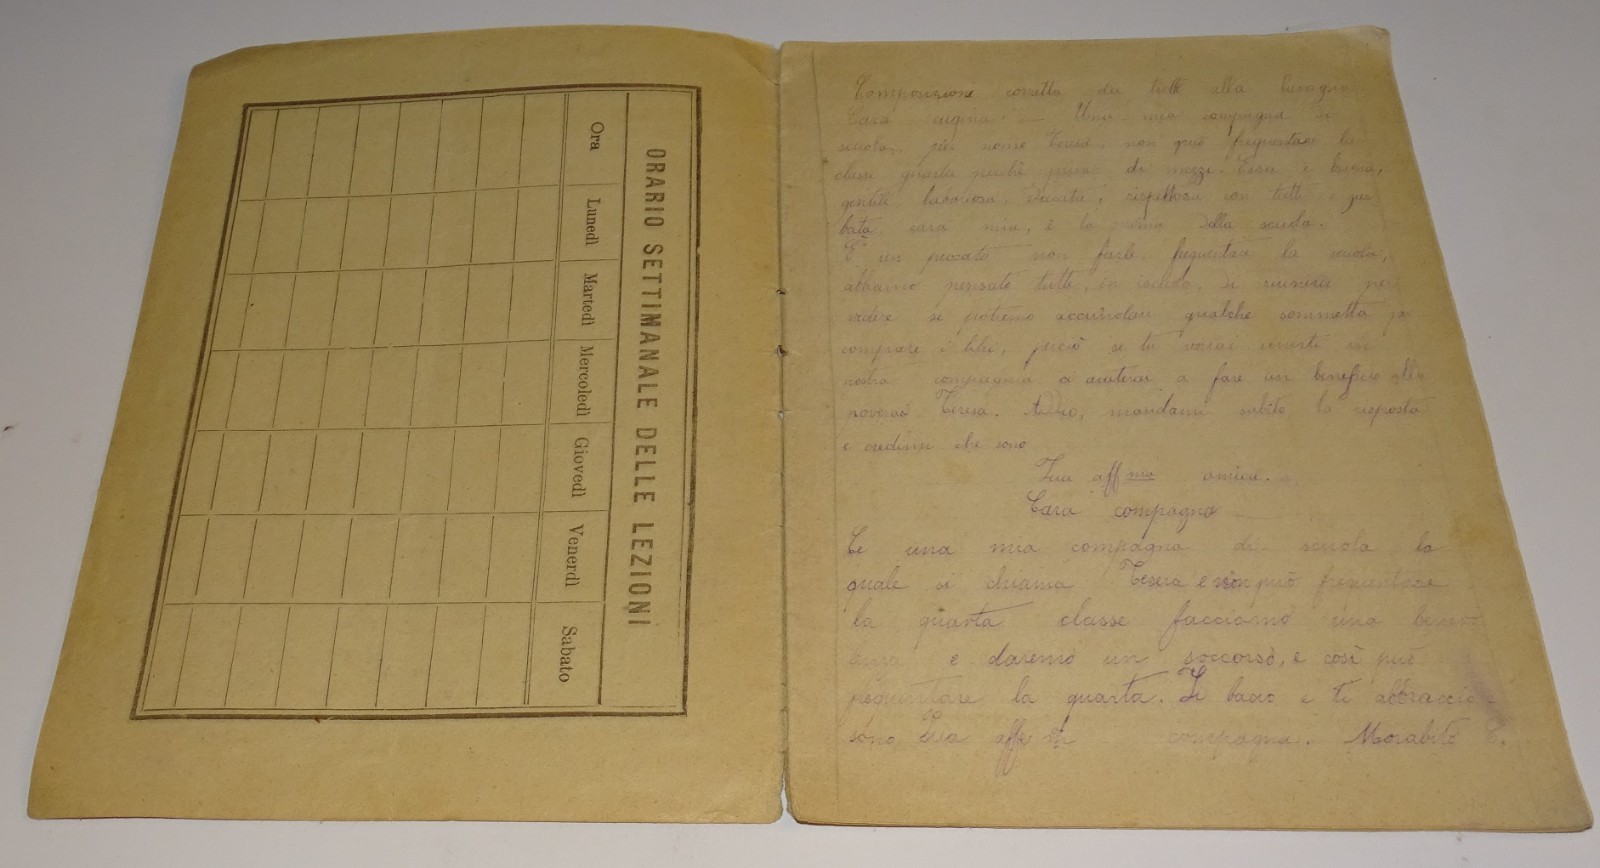 ORARIO SETTIMANALE DELLE LEZIONI
Ora Lunedì Martedì Mercoledì Giovedì Venerdì Sabato
Composizione corretta da tutte alla lavagna
Cara cugina. — Una mia compagna di
scuola, per nome Teresa, non può frequentare la
classe quarta perchè priva di mezzi. Essa è buona,
gentile, laboriosa, rispettosa con tutti e
bata, cara mia, è la prima della scuola.
È un peccato non farle frequentare la scuola,
abbiamo pensato tutte, in iscuola, di riunirci per
vedere se potremo accumolare qualche sommetta
comprare i libri, perciò se tu vorrai venirti in
nostra compagnia a fare un beneficio alla
povera Teresa. Addio, mandami subito la risposta
e credimi che sono
Tua aff ma amica.
Cara compagna
Ce una mia compagna di scuola la
quale si chiama Teresa e non può frequentare
la quarta classe facciamo una
e daremo un soccorso, e così può
frequentare la quarta. Ti bacio e ti abbraccio
sono tua aff compagna. Morabito C.